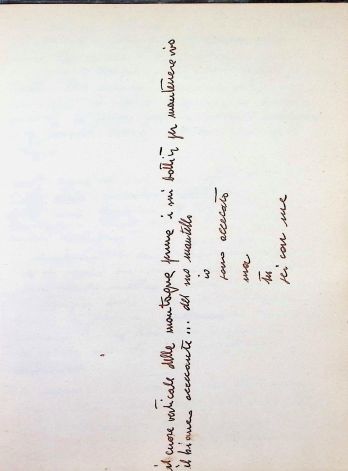 il cuore verticale delle montagne preme i miei battiti per mantenere vivo
il bianco accecante... del mio mantello
io
sono accecato
ma
tu
sei con me